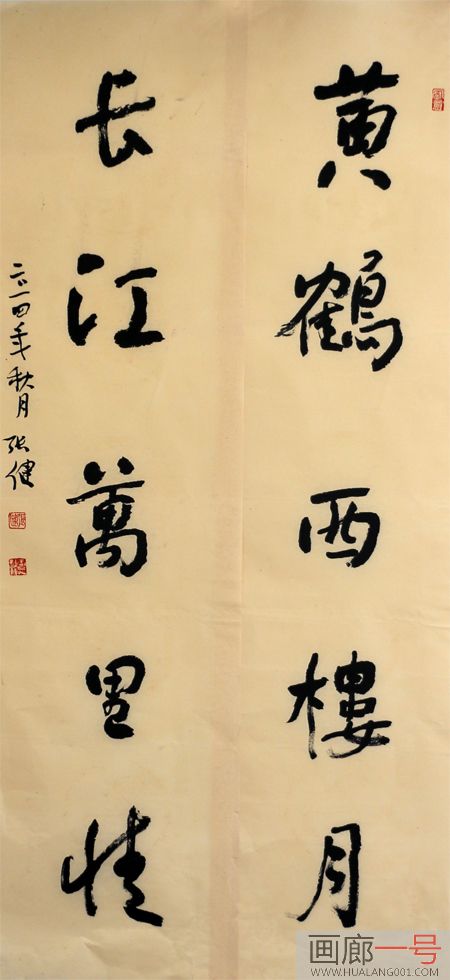 黄鹤西樓月
长江萬里情
二〇一四年秋月 张健
画廊一号
WWW.HUALANG001.COM